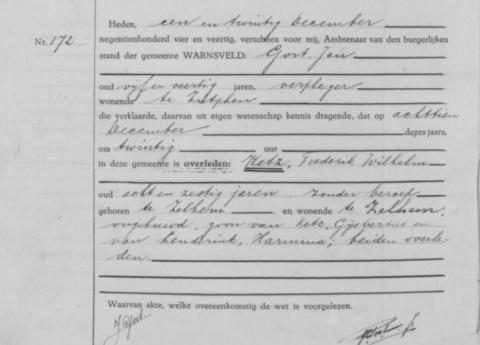 Heden, een en twintig December
Nr. 172
negentienhonderd vier en veertig, verscheen voor mij, Ambtenaar van den burgerlijken
stand der gemeente WARNSVELD: Gort, Jan
oud vijf en veertig jaren, verpleger
wonende te Zutphen
die verklaarde, daarvan uit eigen wetenschap kennis dragende, dat op achttien
December dezes jaars,
om twintig uur
in deze gemeente is overleden: Ketz, Frederik Wilhelm
oud acht en zestig jaren zonder beroep
geboren te Zelhem en wonende te Zelhem,
ongehuwd, zoon van Ketz, Gijsbertus en
van Lenderink, Harmina; beiden overle
den.
Waarvan akte, welke overeenkomstig de wet is voorgelezen.